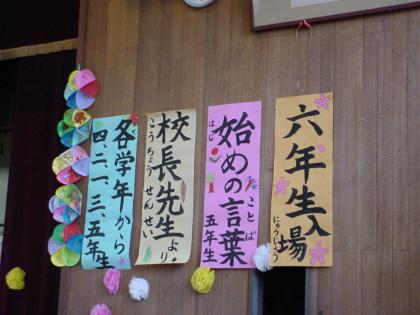 六年生入場
にゅうじょう
始めの言葉
はじ
ことば
五年生
校長先生より
こうちょうせんせい
各学年から
かく
四、二、一、三、五年生